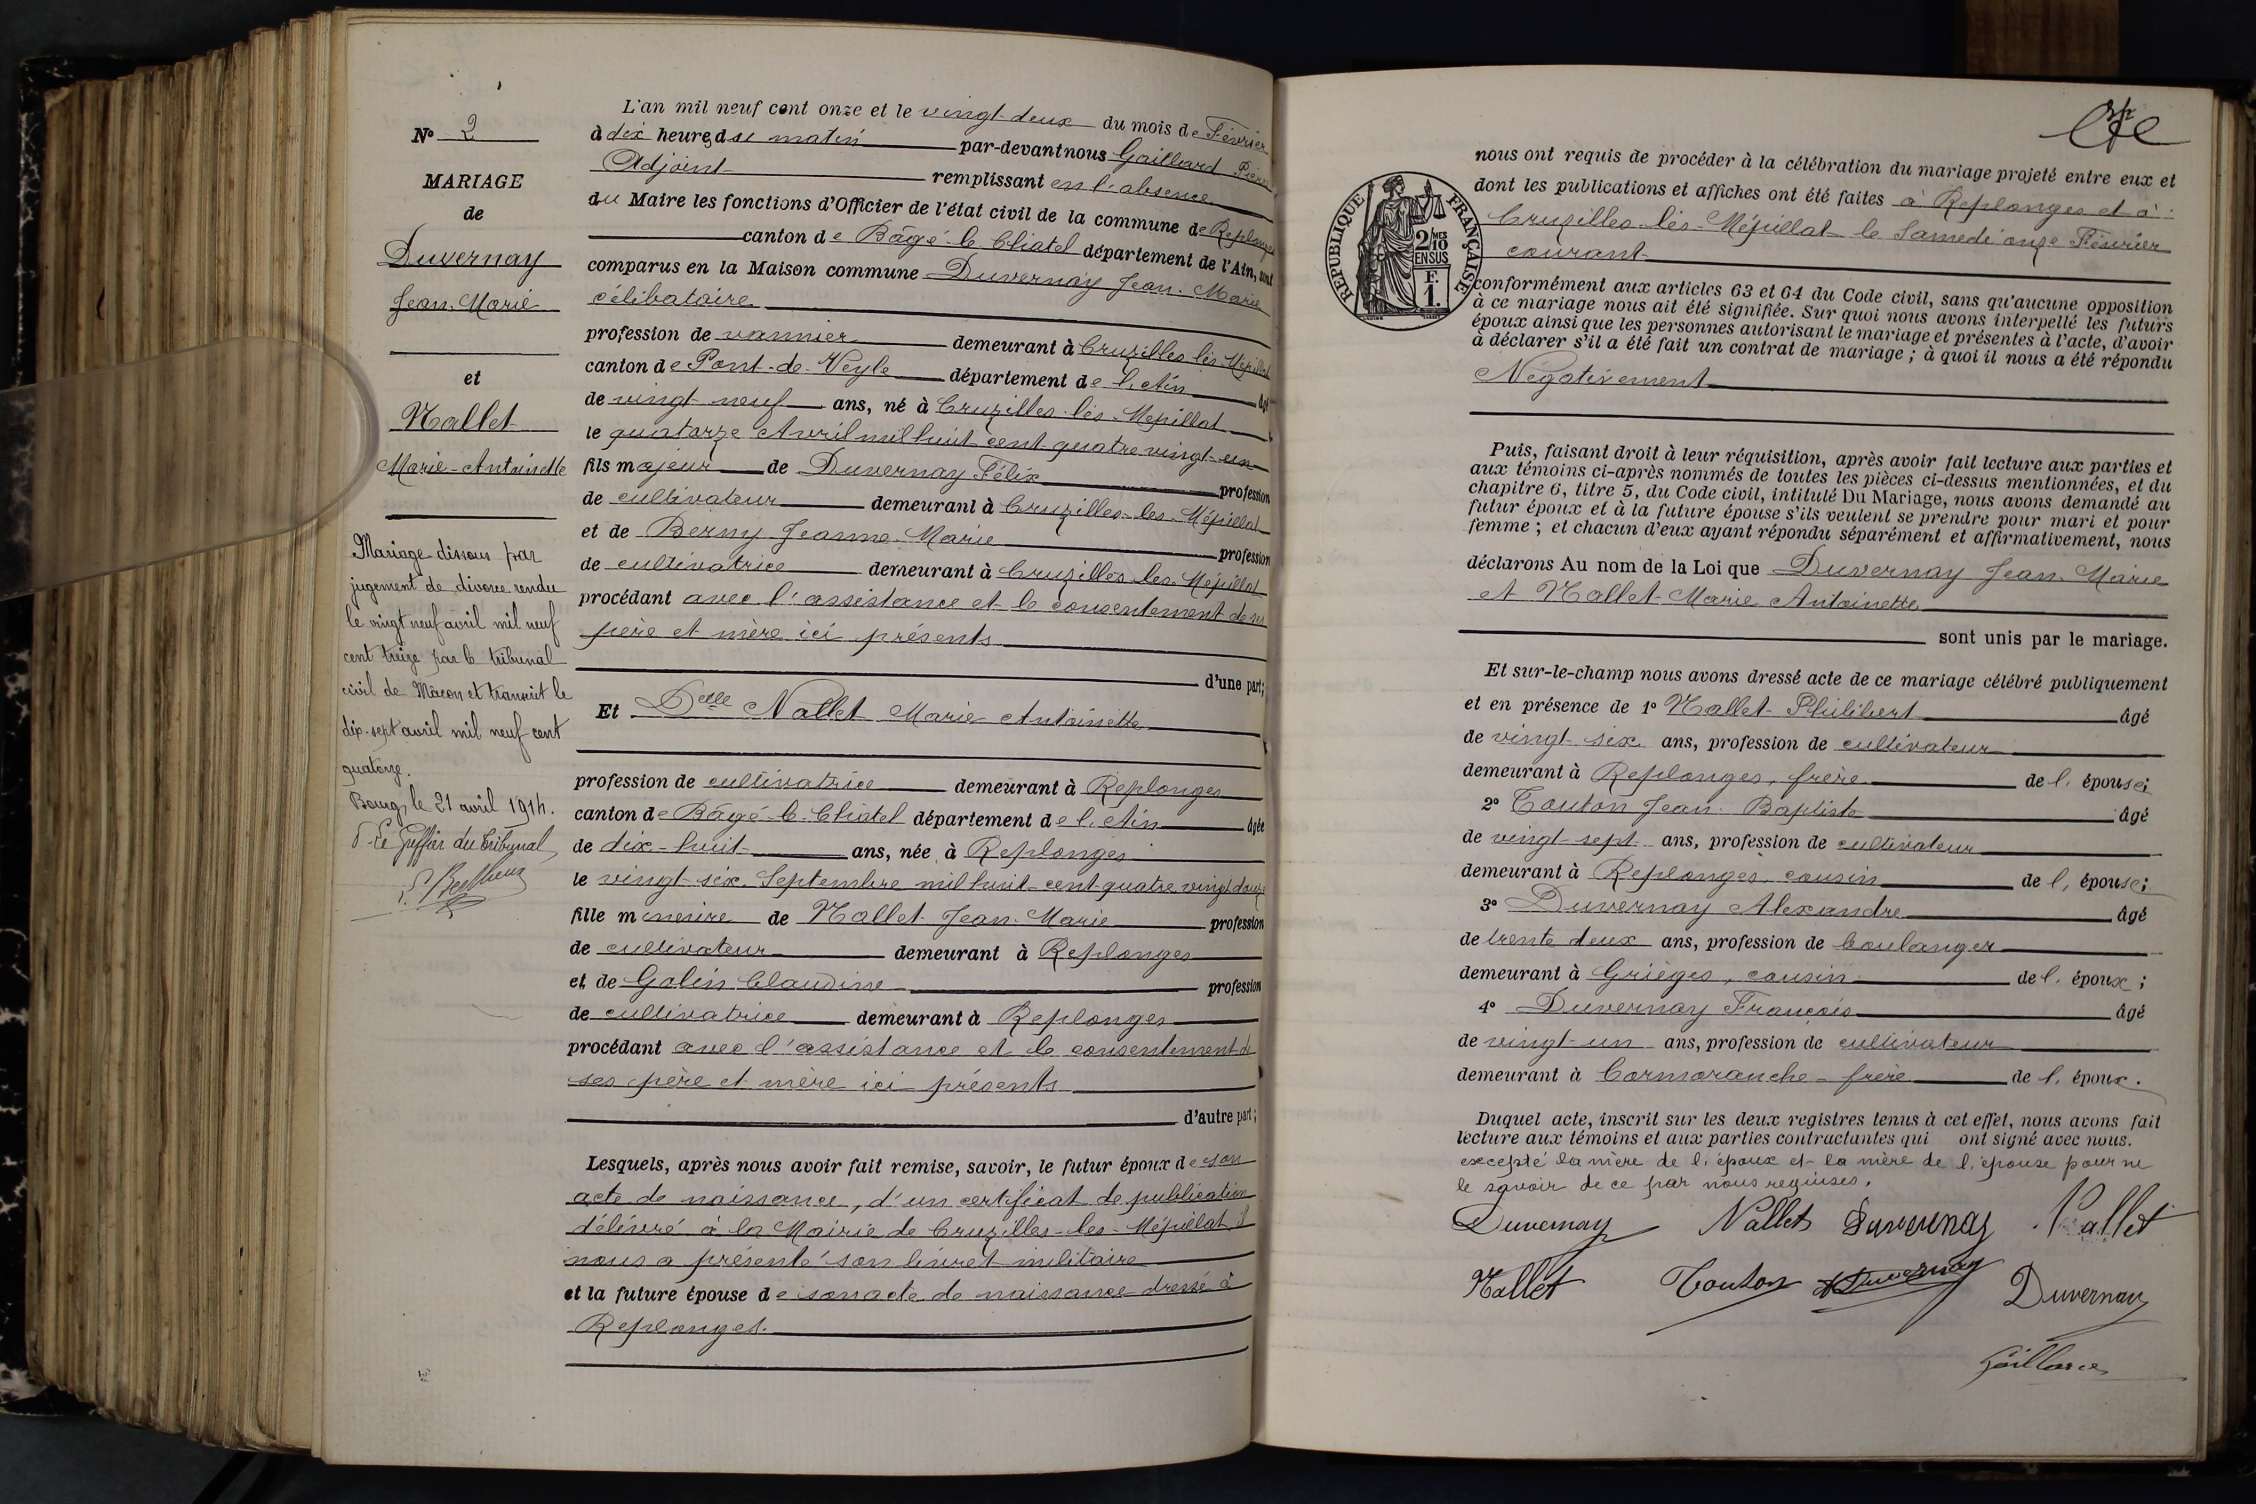 N° 2
MARIAGE
de
Duvernay
Jean-Marie
et
Nallet
Marie-Antoinette
Mariage dissous par
jugement de divorce rendu
le vingt neuf avril mil neuf
cent treize par le tribunal
civil de Mâcon et transcrit le
dix-sept avril mil neuf cent
quatorze.
Bourg, le 21 avril 1914.
Le Greffier du Tribunal,
L'an mil neuf cent onze et le vingt-deux du mois de Février
à dix heures du matin par-devant nous Gaillard Pierre
Adjoint remplissant en l'absence
du Maire les fonctions d'Officier de l'état civil de la commune de Replonges
canton de Bâgé-le-Châtel département de l'Ain, sont
comparus en la Maison commune Duvernay Jean-Marie
célibataire
profession de vannier demeurant à Cruzilles-lès-Mépillat
canton de Pont-de-Veyle département de l'Ain âgé
de vingt neuf ans, né à Cruzilles-lès-Mépillat
le quatorze Avril mil huit cent quatre vingt-un
fils majeur de Duvernay Félix profession
de cultivateur demeurant à Cruzilles-les-Mépillat
et de Berny Jeanne-Marie profession
de cultivatrice demeurant à Cruzilles-les-Mépillat
procédant avec l'assistance et le consentement de ses
père et mère ici présents
d'une part;
Et Delle Nallet Marie Antoinette
profession de cultivatrice demeurant à Replonges
canton de Bâgé-le-Châtel département de l'Ain âgée
de dix-huit ans, née à Replonges
le vingt-six Septembre mil huit-cent-quatre vingt douze
fille mineure de Nallet Jean-Marie profession
de cultivateur demeurant à Replonges
et de Golin Claudine profession
de cultivatrice demeurant à Replonges
procédant avec l'assistance et le consentement de
ses père et mère ici présents
d'autre part;
Lesquels, après nous avoir fait remise, savoir, le futur époux de son
acte de naissance, d'un certificat de publication
délivré à la Mairie de Cruzilles-les-Mépillat, il
nous a présenté son livret militaire
et la future épouse de son acte de naissance dressé à
Replonges.
nous ont requis de procéder à la célébration du mariage projeté entre eux et
dont les publications et affiches ont été faites à Replonges et à
Cruzilles-lès-Mépillat le Samedi onze Février
courant
RÉPUBLIQUE FRANÇAISE
2/MES
10
EN SUS
F.
1.
conformément aux articles 63 et 64 du Code civil, sans qu'aucune opposition
à ce mariage nous ait été signifiée. Sur quoi nous avons interpellé les futurs
époux ainsi que les personnes autorisant le mariage et présentes à l'acte, d'avoir
à déclarer s'il a été fait un contrat de mariage; à quoi il nous a été répondu
Négativement
Puis, faisant droit à leur réquisition, après avoir fait lecture aux parties et
aux témoins ci-après nommés de toutes les pièces ci-dessus mentionnées, et du
chapitre 6, titre 5, du Code civil, intitulé Du Mariage, nous avons demandé au
futur époux et à la future épouse s'ils veulent se prendre pour mari et pour
femme; et chacun d'eux ayant répondu séparément et affirmativement, nous
déclarons Au nom de la Loi que Duvernay Jean-Marie
et Nallet Marie Antoinette
sont unis par le mariage.
Et sur-le-champ nous avons dressé acte de ce mariage célébré publiquement
et en présence de 1° Nallet Philibert âgé
de vingt six ans, profession de cultivateur
demeurant à Replonges, frère de l'épouse;
2° Touton Jean-Baptiste âgé
de vingt-sept ans, profession de cultivateur
demeurant à Replonges, cousin de l'épouse;
3° Duvernay Alexandre âgé
de trente deux ans, profession de boulanger
demeurant à Grièges, cousin de l'époux;
4° Duvernay François âgé
de vingt-un ans, profession de cultivateur
demeurant à Cormoranche-frère de l'époux.
Duquel acte, inscrit sur les deux registres tenus à cet effet, nous avons fait
lecture aux témoins et aux parties contractantes qui ont signé avec nous.
excepté la mère de l'époux et la mère de l'épouse pour ne
le savoir de ce par nous requises.
Duvernay Nallet Duvernay Nallet
Nallet Touton A Duvernay Duvernay
Gaillard